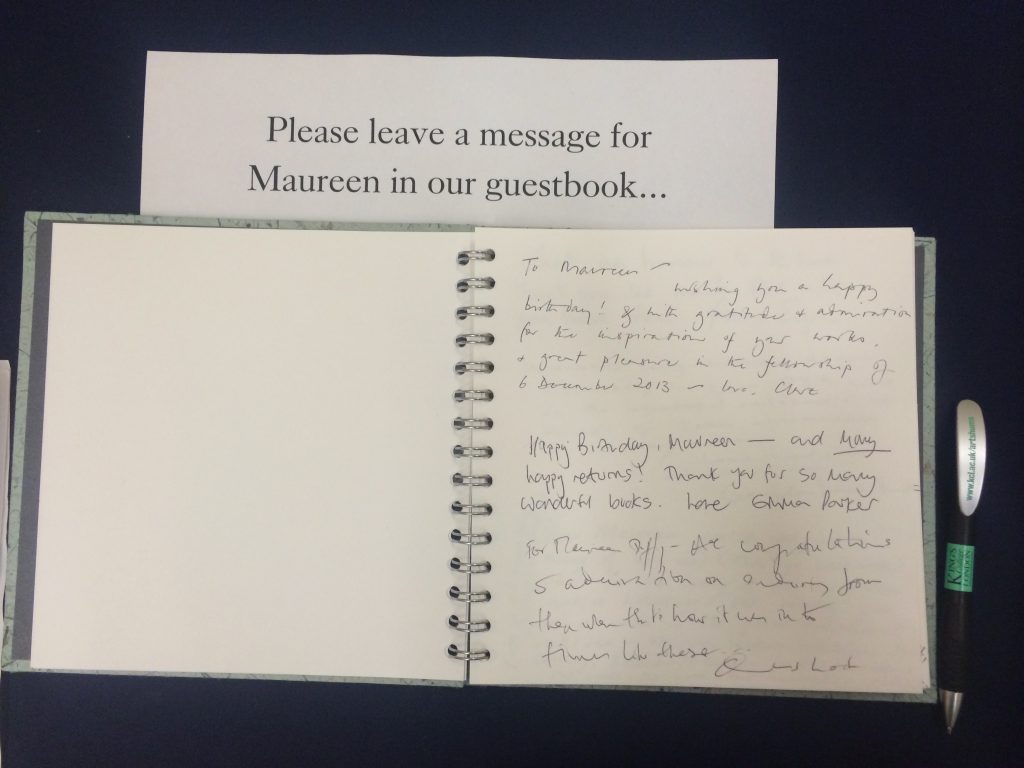 Please leave a message for
Maureen in our guestbook...
To Maureen ~
wishing you a happy
birthday! & with gratitude + admiration
for the inspiration of your works,
+ great pleasure in the fellowship of
6 December 2013 ~ love, Clare
Happy Birthday, Maureen — and Many
happy returns! Thank you for so many
wonderful books. Love Emma Parker
For Maureen Duffy - congratulations
admiration on enduring from
then when to how it was in
times like these
www.kcl.ac.uk/artshums
KING'S
College
LONDON